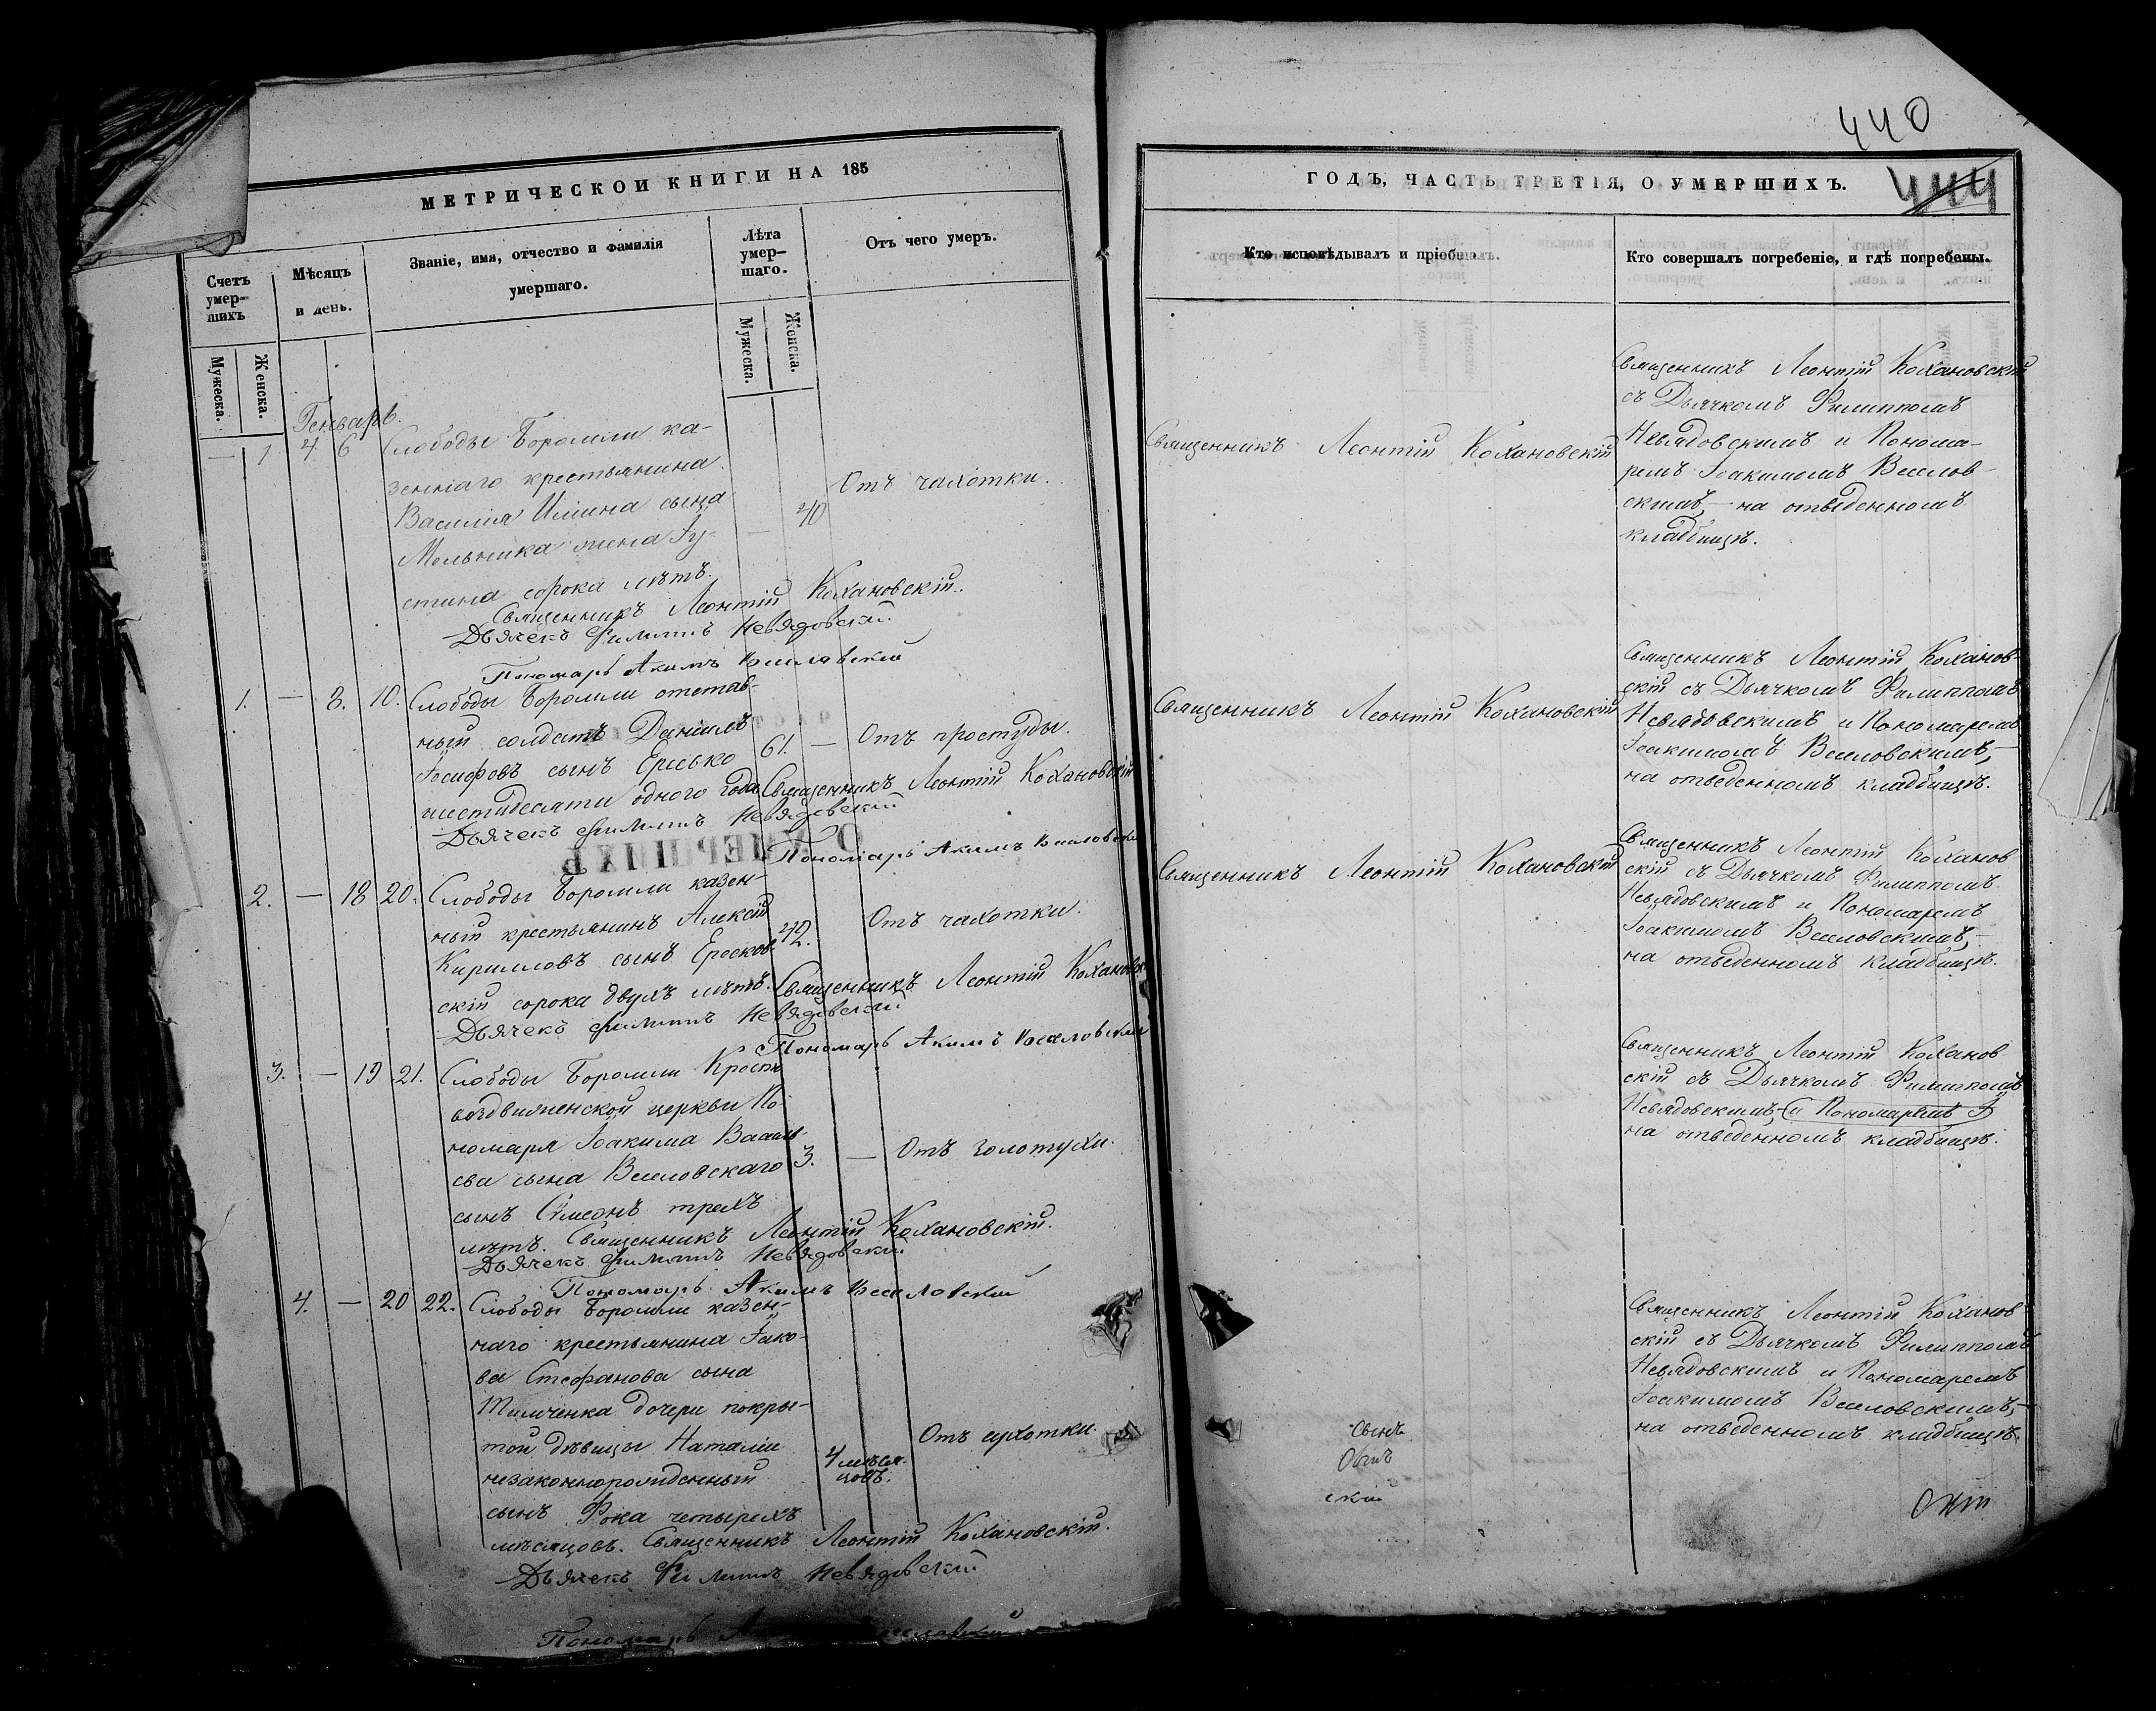 МЕТРИЧЕСКОЙ КНИГИ НА 185
Счетъ умер-шихъ
Мѣсяцъ и день.
Званіе, имя, отчество и фамилія умершаго.
Лѣта умер-шаго.
Отъ чего умеръ.
Мужеска.
Женска.
Мужеска.
Женска.
Генварь.
— 1 4. 6 Слободы Боромли ка-
зеннаго крестьянина
Василія сына
Мельника жена Іу-
стина сорока лѣтъ.
— 40
Отъ чахотки.
Священникъ Леонтій Кохановскій.
Дьячекъ Филиппъ Невядовскій
Пономарь Акимъ Веселовскій
1. — 8. 10. Слободы Боромли отстав-
ный солдатъ Даніилъ
Іосифовъ сынъ Ересько
шестидесяти одного года
61. — Отъ простуды.
Священникъ Леонтій Кохановскій
Дьячекъ Филиппъ Невядовскій
Пономарь Акимъ Веселовскій
2. — 18 20. Слободы Боромли казен-
ный крестьянинъ Алексій
Кирилловъ сынъ Ересков-
скій сорока двухъ лѣтъ.
42. Отъ чахотки.
Священникъ Леонтій Кохановскій
Дьячекъ Филиппъ Невядовскій
Пономарь Акимъ Веселовскій
3. — 19 21. Слободы Боромли Кресто
воздвиженской церкви По-
номаря Іоакима Василь
ева сына Веселовскаго
сынъ Симеонъ трехъ
лѣтъ.
3. — Отъ золотухи.
Священникъ Леонтій Кохановскій.
Дьячекъ Филиппъ Невядовскій
Пономарь Акимъ Веселовскій
4. — 20 22. Слободы Боромли казен-
наго крестьянина Іако-
ва Стефанова сына
Тимченка дочери покры-
той дѣвицы Наталіи
незаконнорожденный
сынъ Фока четырехъ
мѣсяцовъ.
4 мѣся-
цовъ.
Отъ сухотки.
Священникъ Леонтій Кохановскій.
Дьячекъ Филиппъ Невядовскій
Пономарь
440
ГОДЪ, ЧАСТЬ ТРЕТІЯ, О УМЕРШИХЪ.
444
Кто исповѣдывалъ и пріобщалъ.
Кто совершалъ погребеніе, и гдѣ погребены.
Священникъ Леонтій Кохановскій
Священникъ Леонтій Кохановскій
съ Дьячкомъ Филиппомъ
Невядовскимъ и Понома-
ремъ Іоакимомъ Веселов-
скимъ, — на отведенномъ
кладбищѣ.
Священникъ Леонтій Кохановскій
Священникъ Леонтій Коханов-
скій съ Дьячкомъ Филиппомъ
Невядовскимъ и Пономаремъ
Іоакимомъ Веселовскимъ, —
на отведенномъ кладбищѣ.
Священникъ Леонтій Кохановскій
Священникъ Леонтій Коханов
скій съ Дьячкомъ Филиппомъ
Невядовскимъ и Пономаремъ
Іоакимомъ Веселовскимъ, —
на отведенномъ кладбищѣ.
Священникъ Леонтій Коханов
скій съ Дьячкомъ Филиппомъ
Невядовскимъ (и Пономаремъ І)
на отведенномъ кладбищѣ.
Священникъ Леонтій Коханов
скій съ Дьячкомъ Филиппомъ
Невядовскимъ и Пономаремъ
Іоакимомъ Веселовскимъ, —
на отведенномъ кладбищѣ.
сынъ
скій